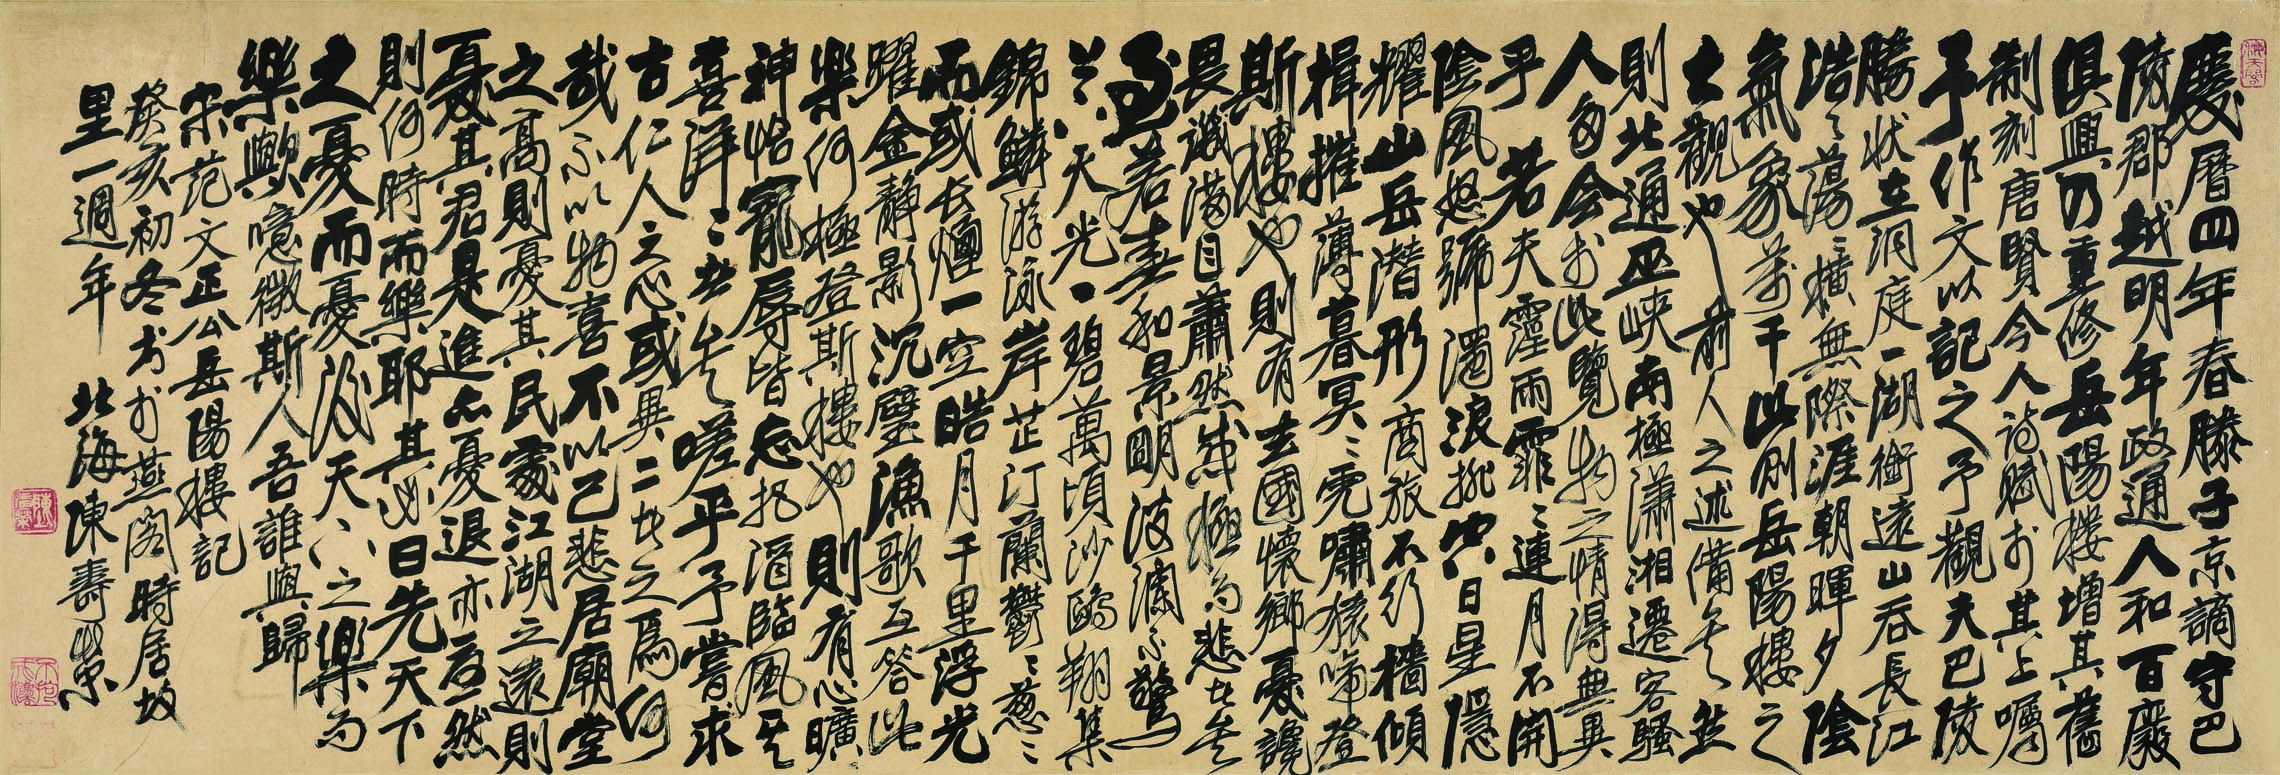 慶曆四年春滕子京謫守巴
陵郡越明年政通人和百廢
俱興乃重修岳陽樓增其舊
制刻唐賢今人詩賦於其上囑
予作文以記之予觀夫巴陵
勝狀在洞庭一湖銜遠山吞長江
浩〻蕩〻橫無際涯朝暉夕陰
氣象萬千此則岳陽樓之
大觀也前人之述備矣然
則北通巫峽南極瀟湘遷客騷
人多會於此覽物之情得無異
乎若夫霪雨霏〻連月不開
陰風怒號濁浪排空日星隱
耀山岳潛形商旅不行檣傾
楫摧薄暮冥〻虎嘯猿啼登
斯樓也則有去國懷鄉憂讒
畏譏滿目蕭然感極而悲者矣
至若春和景明波瀾不驚
上下天光一碧萬頃沙鷗翔集
錦鱗游泳岸芷汀蘭鬱〻蔥〻
而或長煙一空皓月千里浮光
躍金靜影沉璧漁歌互答此
樂何極登斯樓也則有心曠
神怡寵辱皆忘把酒臨風其
喜洋〻者矣嗟乎予嘗求
古仁人之心或異二者之為何
哉不以物喜不以己悲居廟堂
之高則憂其民處江湖之遠則
憂其君是進亦憂退亦憂然
則何時而樂耶其必曰先天下
之憂而憂後天下之樂而
樂歟噫微斯人吾誰與歸
宋范文正公岳陽樓記
癸亥初冬書於燕閣時居故
里一週年 北海陳壽榮